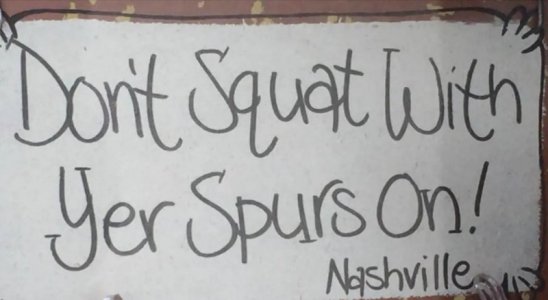 Don't Squat With
Yer Spurs On!
Nashville